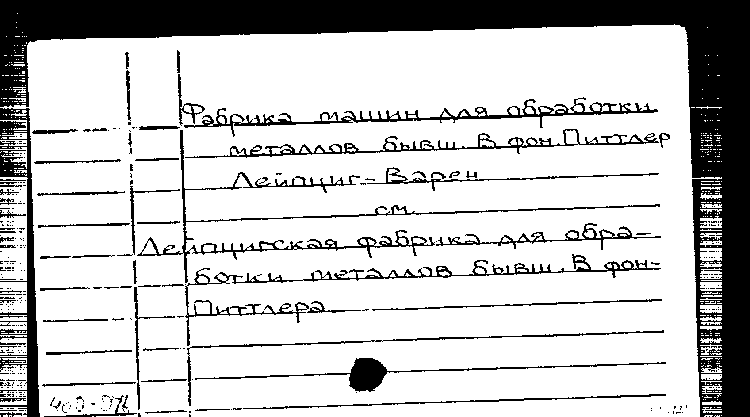 Фабрика машин для обработки
металлов бывш. В фон. Питтлер
Лейпциг - Варен
см.
Лейпцигская фабрика для обра-
ботки металлов бывш. В фон-
Питтлера